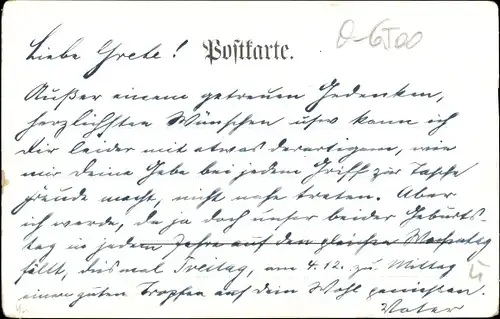 Postkarte.
O-6500
Liebe Grete!
Außer einem getreuen Gedenken,
herzlichsten Wünschen usw kann ich
Dir leider mit etwas derartigem, wie
mir Deine Gabe bei jedem Griff zur Tasche
Freude macht, nicht nahe treten. Aber
ich werde, da ja doch unser beider Geburts-
tag in jedem Jahre auf den gleichen Wochentag
fällt, diesmal Freitag, am 4.12. zu Mittag
einen guten Tropfen auf dein Wohl genießen.
Vater